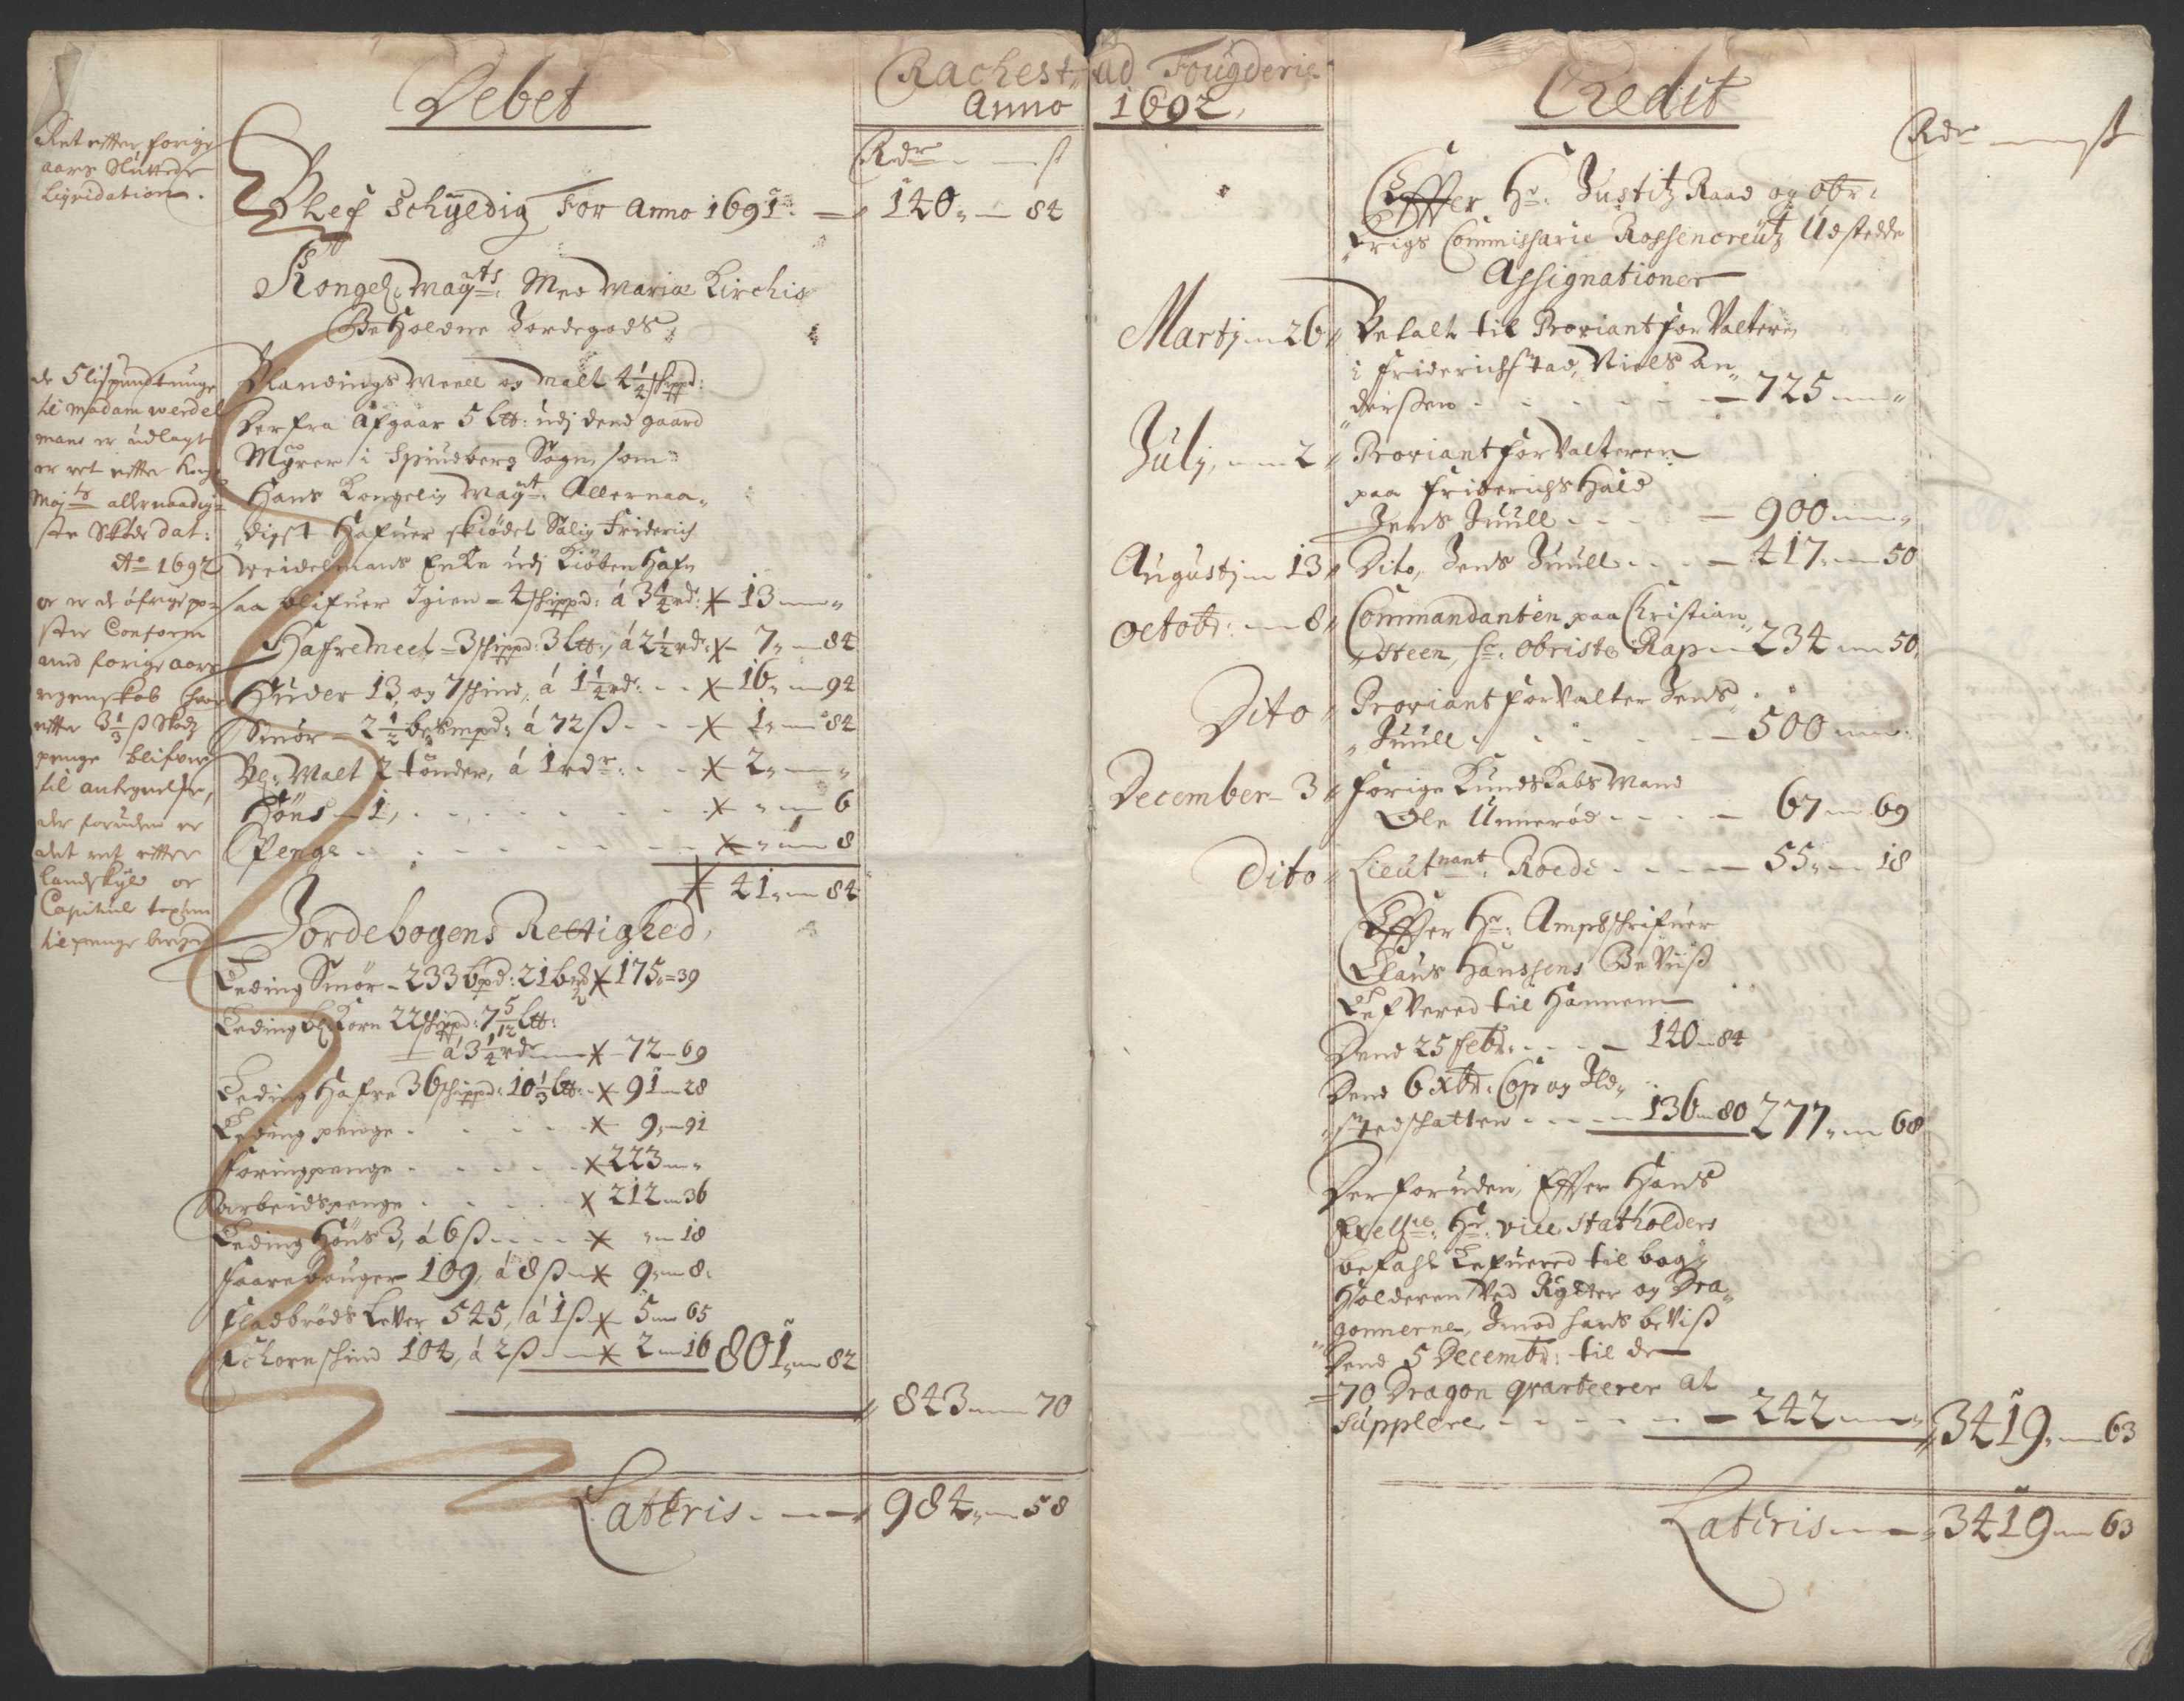 Rachestad Fougderie
Anno 1692
Debet
Rdr ß
Ret efter forige
aars Sluttede
liqvidation.
Blef Schyldig For Anno 1691 140 84
Kongel: Mayts: Med Mariæ Kirchis
BeHoldne Jordegods
de 5 lispund tunge
til madam werdel
mans er udlagt
er ret efter Kong
Mayts allernaadig
ste Skiøde dat:
Ao 1692
or er de øfrige po
ster Conform
med forige aars
regenskab hvor
efter 3 1/3 ß
penge blifver
til antegnelse,
der foruden er
det ret efter
landskyld or
Capituls taxten
til penge
Blandings Meell og Malt 4 1/4 schippd:
Herfra Afgaar 5 Ltt: udj dend gaard
Myrer i Spindberg Sogn som
Hans Kongelig Mayt: Allernaa-
digst Hafuer skiødet Salig Friderich
Weidelmans Enke udj KiøbenHafn
saa blifuer Igien - 4 schippd: á 3 1/4 rdr: 13
Hafremeel - 3 schippd: 3 Ltt:, á 2 1/2 rdr: 7 84
Huder 13, og 7 schind, á 1 1/4 rdr: 16 94
Smør - 2 1/2 bismpd: á 72 ß 1 84
Bl: Malt 2 tønder, á 1 rdr: 2
Høns - 1, 6
Penge 8
41 84
Jordebogens Rettighed,
Leding Smør - 233 bpd: 21 175 39
Leding bl: Korn 22 schippd: 7 5/12 Ltt:
á 3 1/4 rdr 72 69
Leding Hafre 36 schippd: 10 1/3 Ltt: 91 28
Leding penge 9 91
Foringpenge 223
Arbeidspenge 212 36
Leding Høns 3, á 6 ß 18
Faarebouger 109, á 8 ß 9 8
Fladbrøds Lever 545, á 1 ß 5 65
Echornschind 104, á 2 ß 2 16 801 82
843 70
Lateris 984 58
Credit
Rdr ß
Effter Hr: Justitz Raad og Obr:
Krigs Commissarie Rossencreutz Udstedde
Assignationer
Martj 26 Betalt til Proviantforvalteren
i Friderichstad, Niels An-
dersen 725
Julj, 2 Proviantforvalteren
paa Friderichshald
Jens Juull 900
Augustj 13 Dito, Jens Juull 417 50
Octobr: 8 Commandanten paa Christian-
steen, Hr: Obriste Rap 234 50
Dito Proviantforvalter Jens
Juull 500
December 3 forige Kundskabs Mand
Ole Unnerød 67 69
Dito Lieutnant: Roede 55 18
Effter Hr: Ampsschrifuer
Claus Hanssens Beviiß
Lefvered til Hannem
Dend 25 Febr: 140 84
Dend 6 Xbr: Cop og Ild-
stedschatten 136 80 277 68
Derforuden, Effter Hans
Excellce: Hr: vice Statholders
befahl Lefuered til bog-
Holderen Ved Rytter og Dra-
gonnerne, Imod hans beviß
Dend 5 Decembr: til de
70 Dragon qvarteerer at
Supplere 242 3419 63
Lateris 3419 63